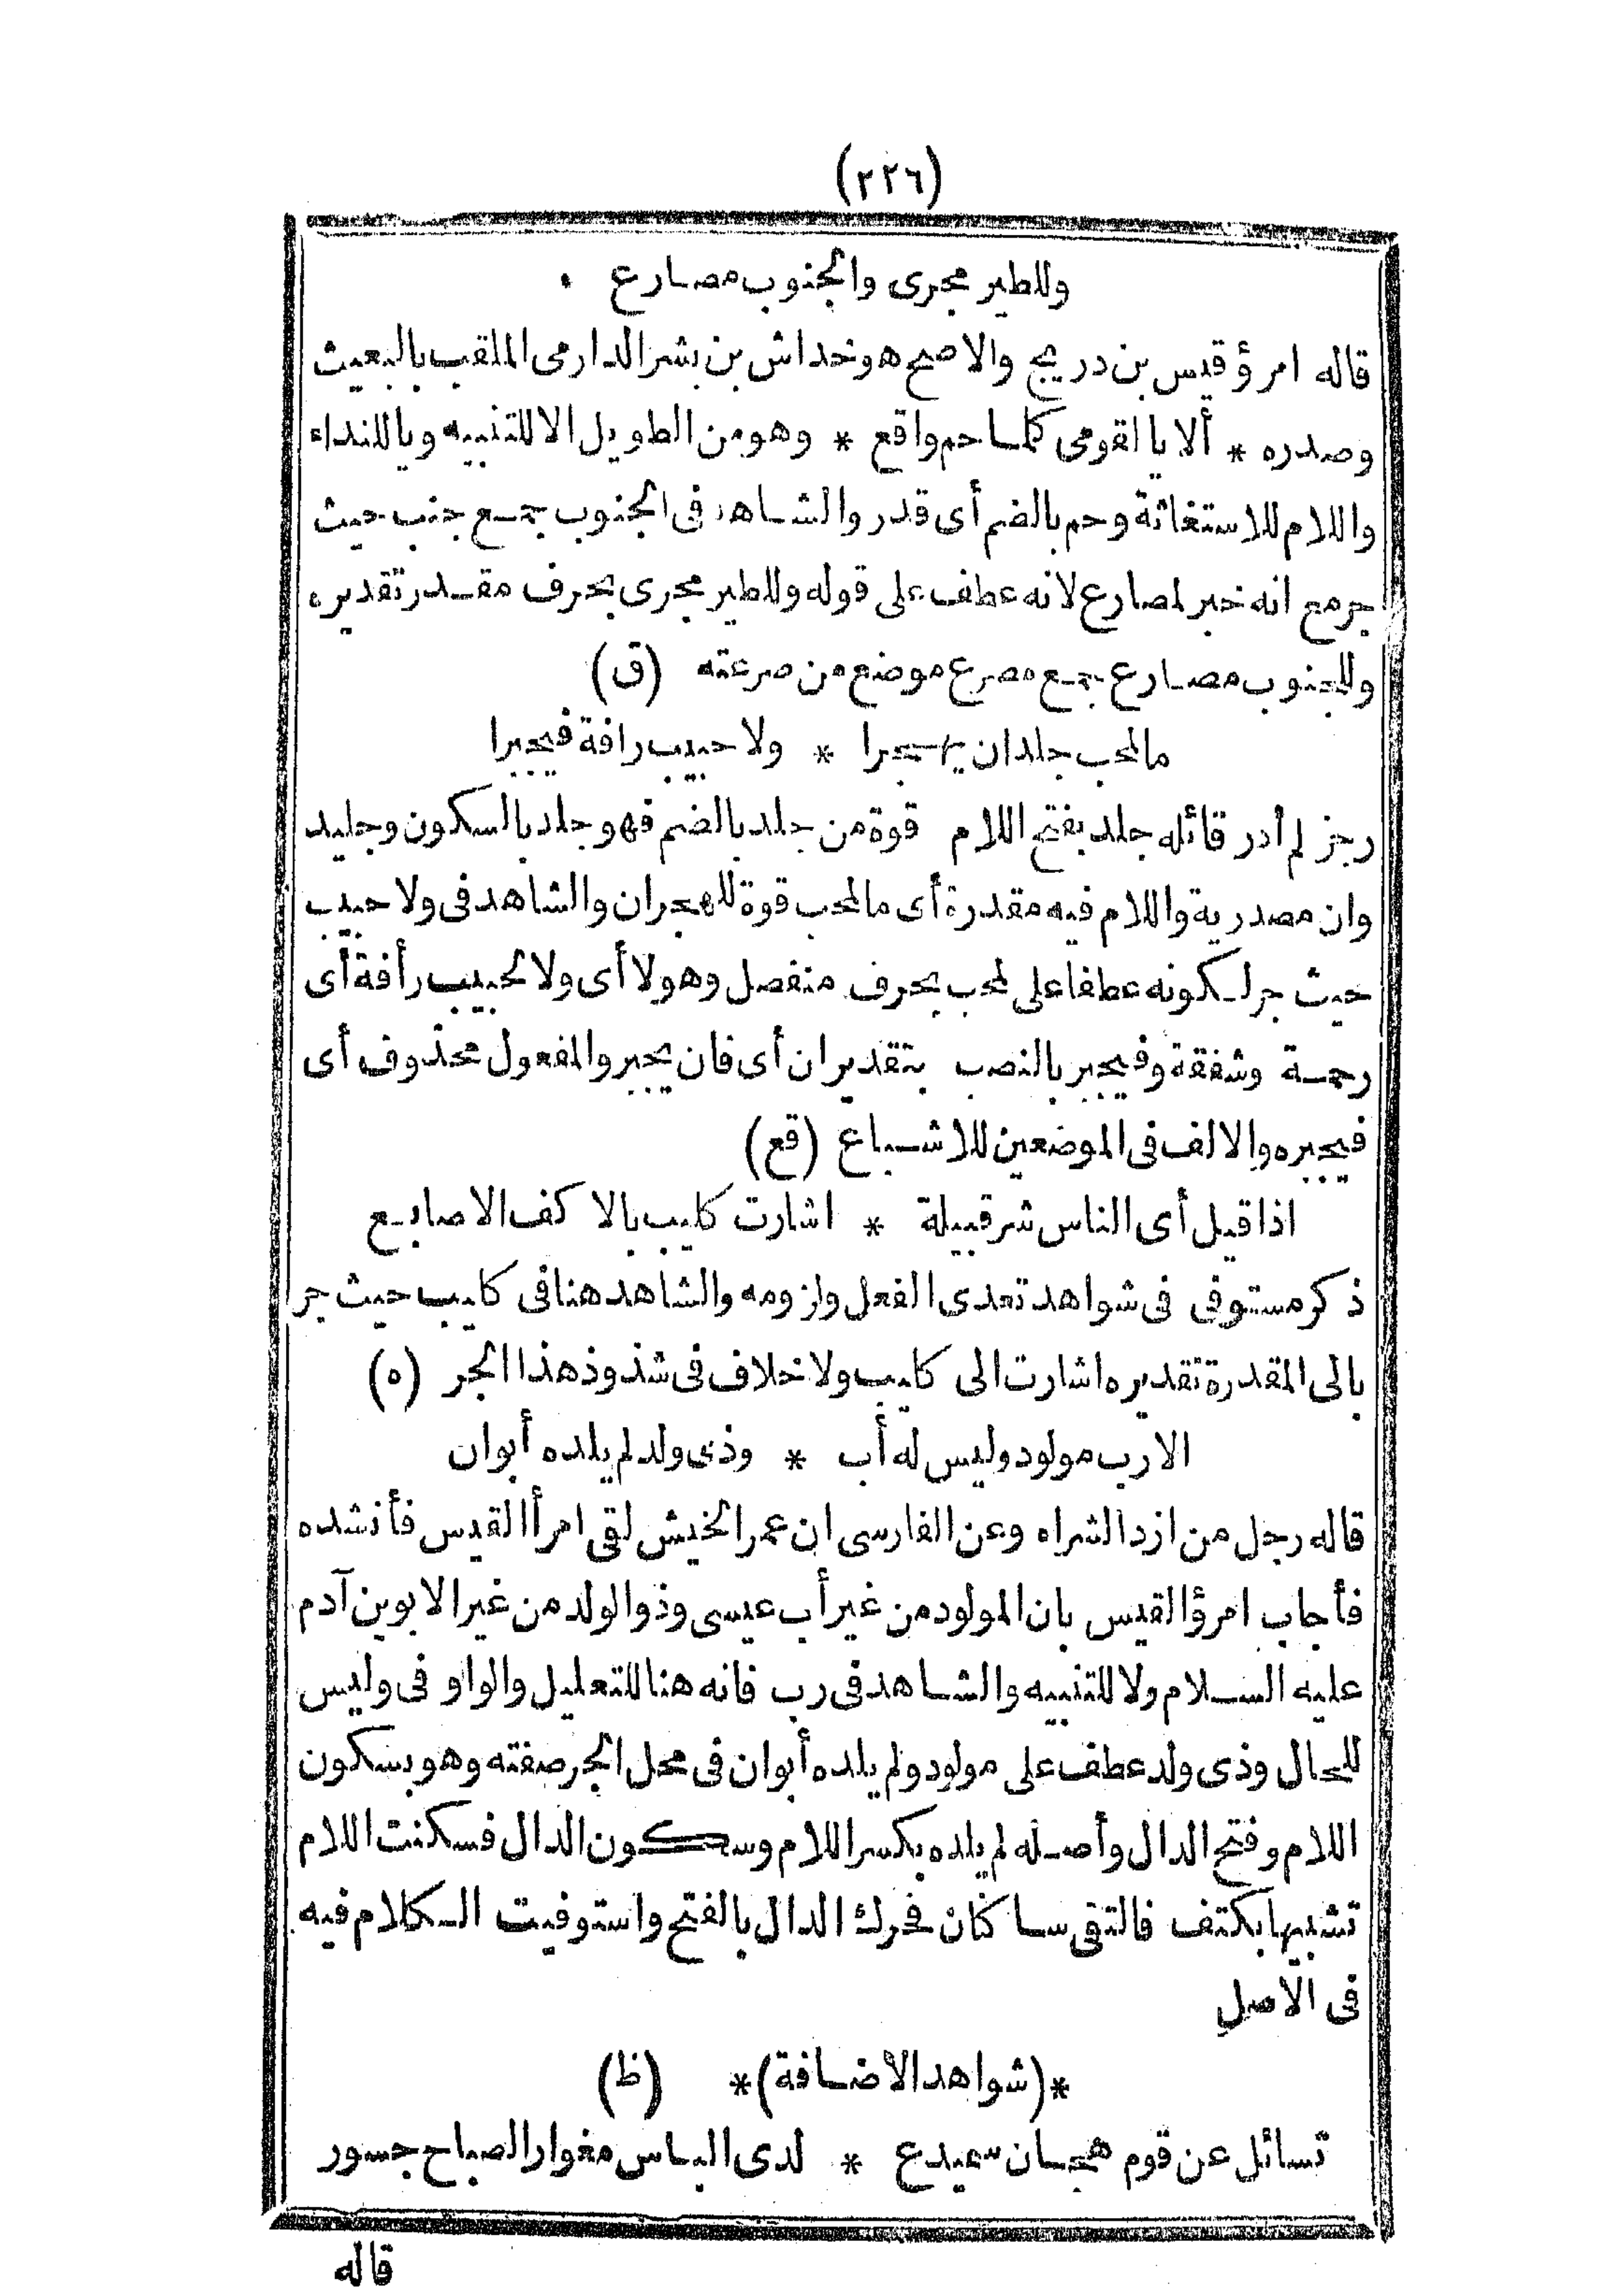 (٢٢٦)
وللطير مجرى والجنوب مصارع ٠
قاله امرؤ قيس بن دريج والاصح هو خداش بن بشر الدارمى الملقب بالبعيث
وصدره * ألا يا لقومى كلما حم واقع * وهو من الطويل الا للتنبيه ويا للنداء
واللام للاستغاثة وحم بالضم أى قدر والشاهد فى الجنوب جمع جنب حيث
جر مع انه خبر لمصارع لانه عطف على قوله وللطير مجرى بحرف مقدر تقديره
وللجنوب مصارع جمع مصرع موضع من صرعته (ق)
ما لمحب جلد ان يهجرا * ولا حبيب رافة فيجبرا
رجز لم أدر قائله جلد بفتح اللام قوة من جلد بالضم فهو جلد بالسكون وجليد
وان مصدرية واللام فيه مقدرة أى ما لمحب قوة للهجران والشاهد فى ولا حبيب
حيث جر لكونه عطفا على لمحب بحرف منفصل وهو لا أى ولا لحبيب رأفة أى
رحمة وشفقة وفيجبر بالنصب بتقدير ان أى فان يجبر والمفعول محذوف أى
فيجبره والالف فى الموضعين للاشباع (قع)
اذا قيل أى الناس شر قبيلة * اشارت كليب بالاكف الاصابع
ذكر مستوفى فى شواهد تعدى الفعل ولزومه والشاهد هنا فى كليب حيث جر
بالى المقدرة تقديره اشارت الى كليب ولا خلاف فى شذوذ هذا الجر (ه)
الا رب مولود وليس له أب * وذى ولد لم يلده أبوان
قاله رجل من ازد الشراه وعن الفارسى ان عمر الخيش لقى امرأ القيس فأنشده
فأجاب امرؤ القيس بان المولود من غير أب عيسى وذو الولد من غير الابوين آدم
عليه السلام ولا للتنبيه والشاهد فى رب فانه هنا للتعليل والواو فى وليس
للحال وذى ولد عطف على مولود ولم يلده أبوان فى محل الجر صفته وهو بسكون
اللام وفتح الدال وأصله لم يلده بكسر اللام وسكون الدال فسكنت اللام
تشبيها بكتف فالتقى ساكنان فحرك الدال بالفتح واستوفيت الكلام فيه
فى الاصل
*(شواهد الاضافة)* (ظ)
تسائل عن قوم هجان سميدع * لدى الباس مغوار الصباح جسور
قاله